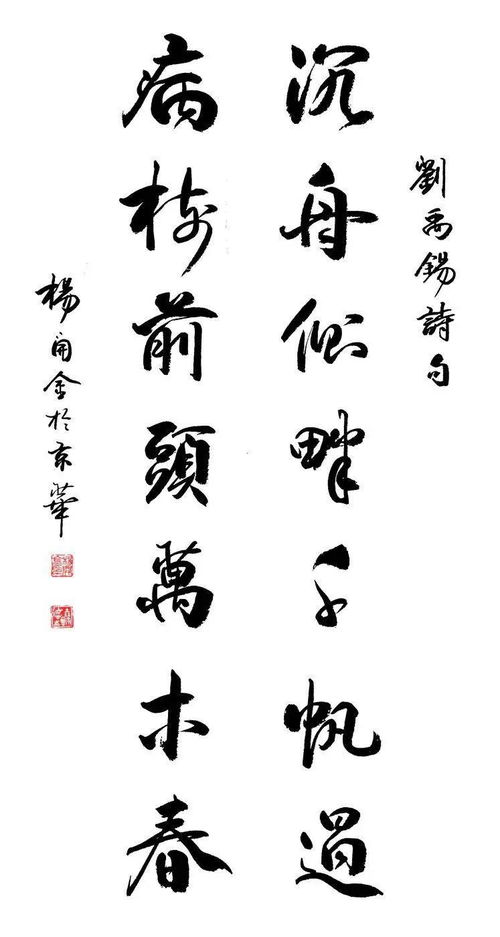 劉禹錫詩句
沉舟側畔千帆過
病樹前頭萬木春
楊開金於京華